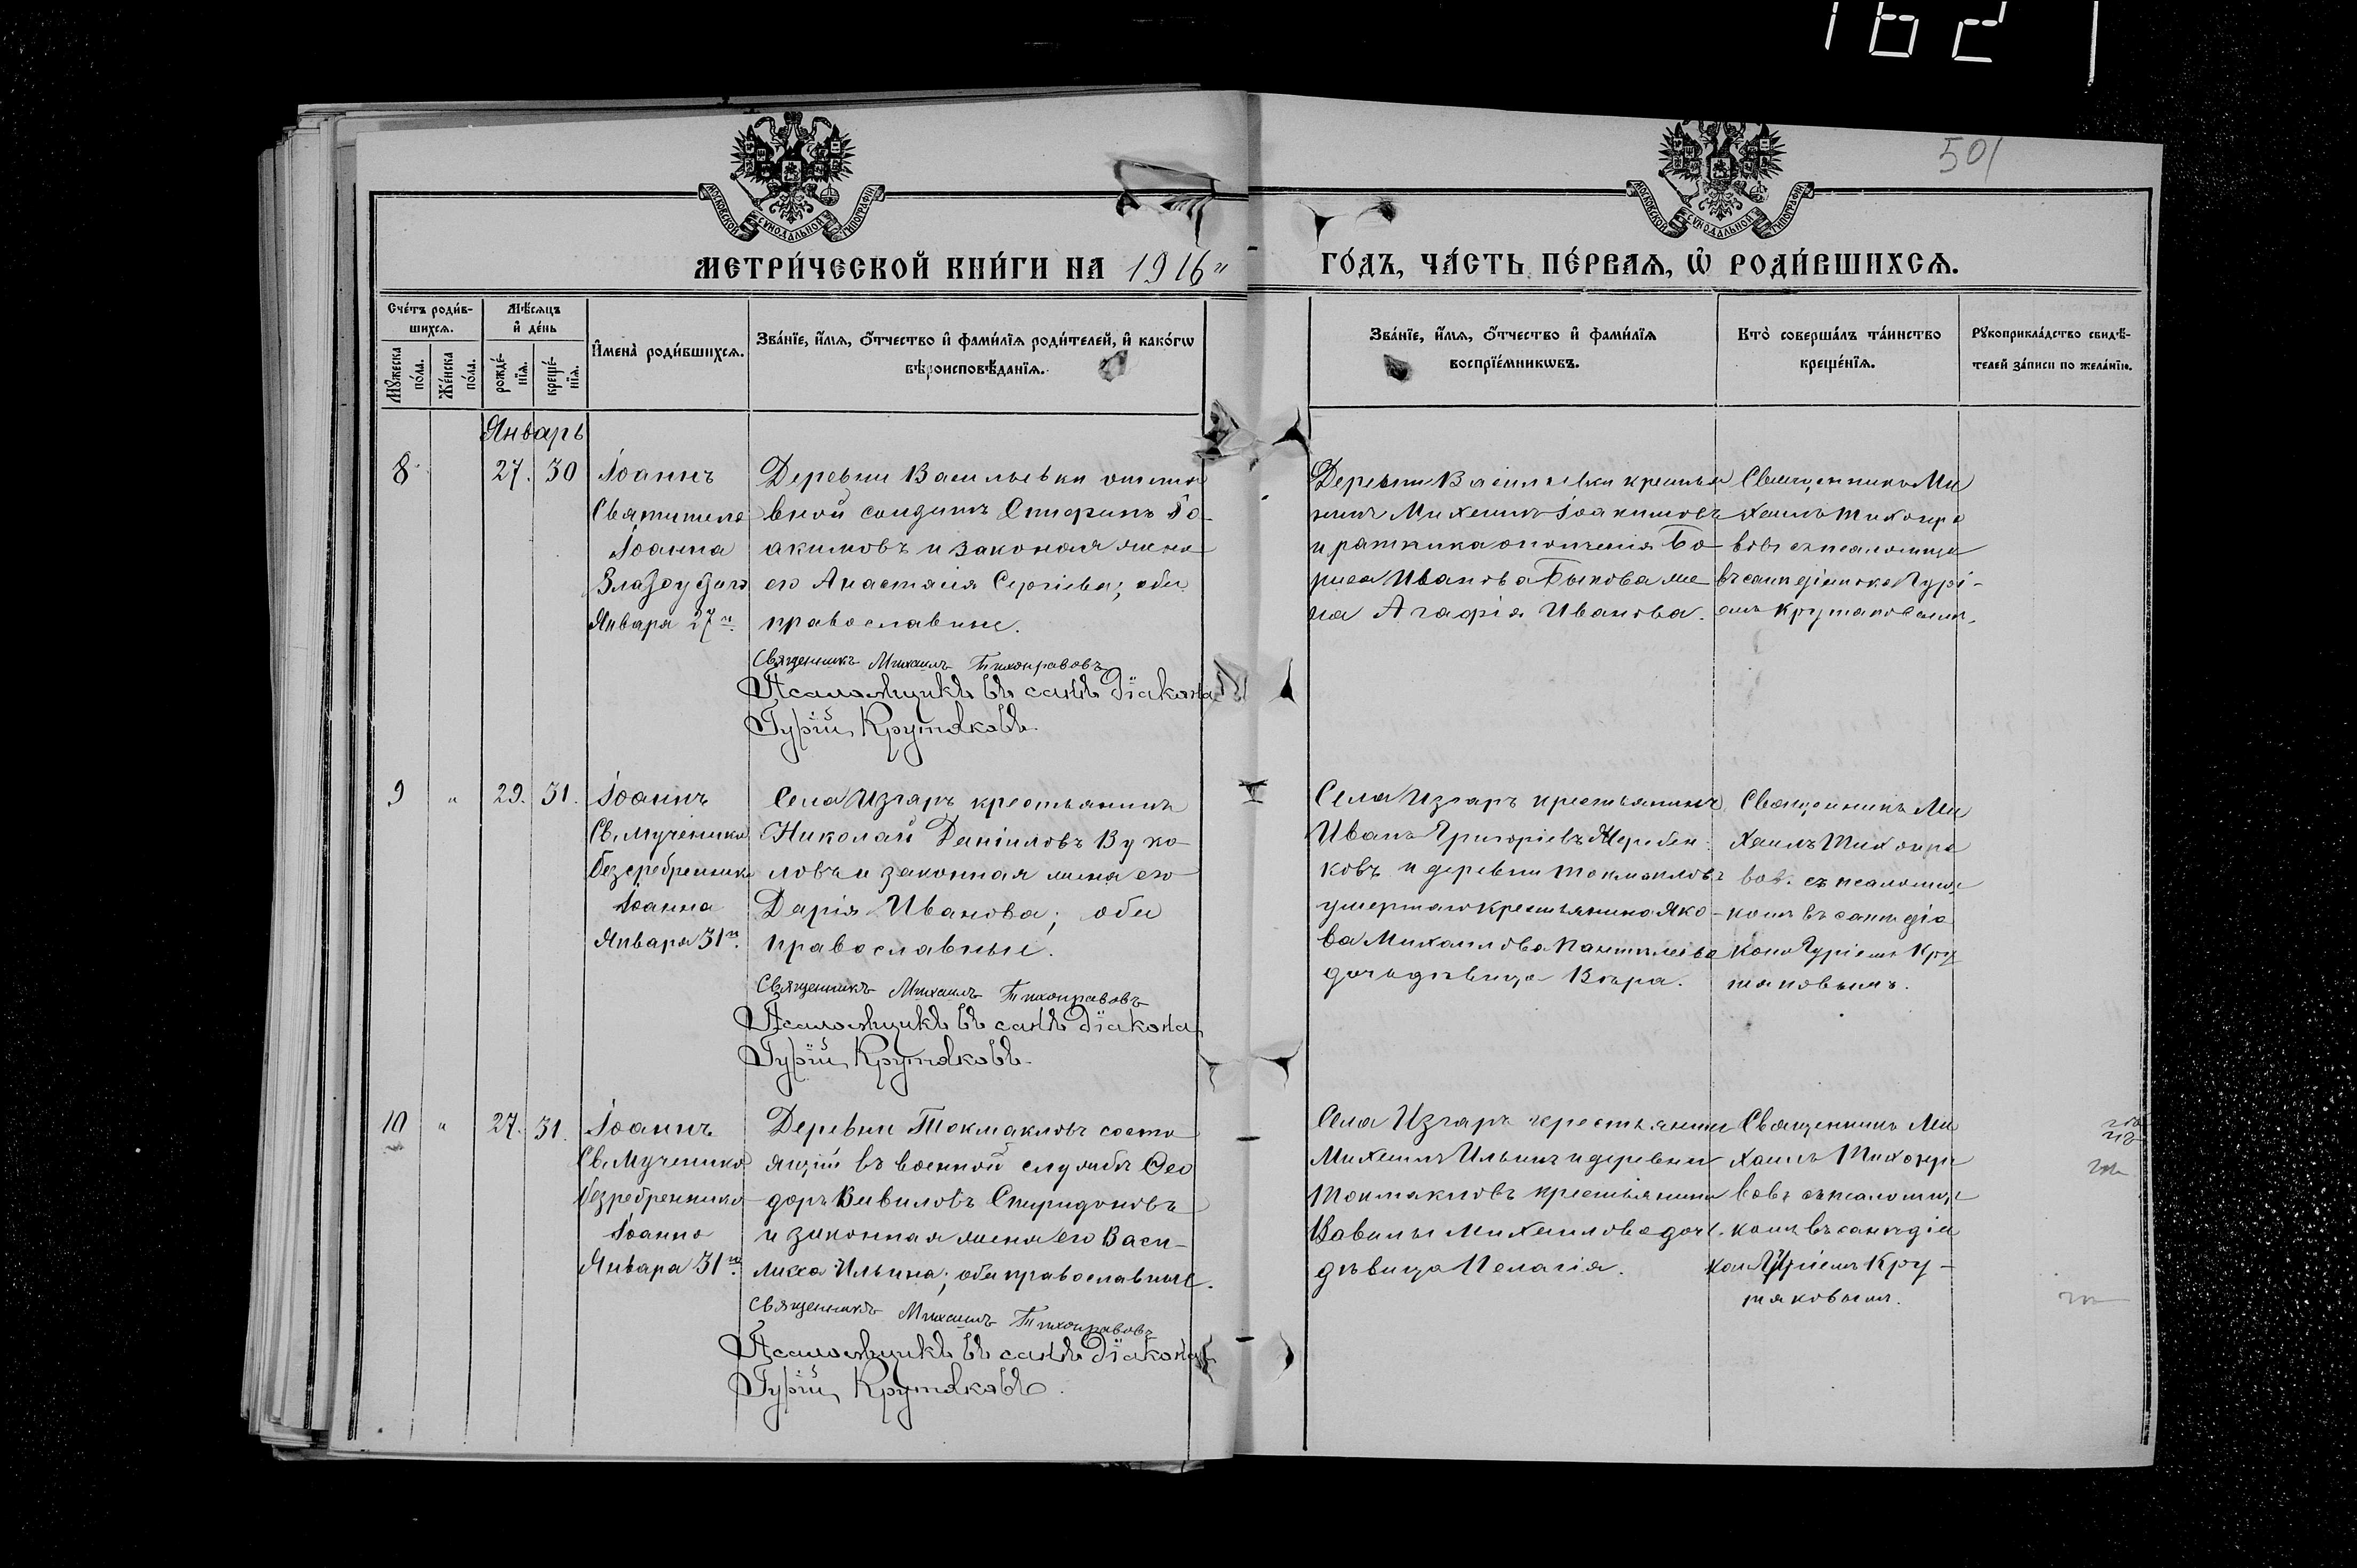 1621
501
МОСКОВСКОЙ СѴНОДАЛЬНОЙ ТИПОГРАФІИ
МОСКОВСКОЙ СѴНОДАЛЬНОЙ ТИПОГРАФІИ
МЕТРИ́ЧЕСКОЙ КНИ́ГИ НА 1916 ГО́ДЪ, ЧА́СТЬ ПЕ́РВАЯ, Ѡ҆ РОДИ́ВШИХСЯ.
Сче́тъ роди́в-
шихся.
Мꙋ́жеска по́ла.
Же́нска по́ла.
Мѣ́сяцъ
и҆ де́нь
рожде́-
нїя.
креще́-
нїя.
И҆мена̀ роди́вшихся.
Зва́нїе, и҆́мя, ѻ҆́тчество и҆ фами́лїя роди́телей, и҆ како́гѡ
вѣроисповѣ́данїя.
Зва́нїе, и҆́мя, ѻ҆́тчество и҆ фами́лїя
воспрїе́мникѡвъ.
Кто̀ соверша́лъ та́инство
креще́нїя.
Рꙋкоприкла́дство свидѣ́-
телей за́писи по жела́нїю.
Январь
8
27. 30
Іоаннъ
Святителя
Іоанна
Златоустаго
Января 27
Деревни Васильевки
вной солдатъ Іо-
акимовъ и законная жена
его Анастасія Сергіева; оба
православные.
Священникъ Михаилъ Тихонравовъ
Псаломщикъ въ санѣ діакона
Гурій Крутяковъ.
Деревни Васильевки крестья
нинъ Михаилъ Іоакимовъ
и ратника ополченія Бо-
риса Иванова Быкова же
на Агафія Иванова.
Священникъ Ми
хаилъ Тихонра
вовъ съ псаломще
въ санѣ діакона Гурі-
емъ Крутяковымъ.
9 "
29. 31.
Іоаннъ
Св. Мученика
безсребренника
Іоанна
Января 31
Села Изгаръ крестьянинъ
Николай Даніиловъ Вуко-
ловъ и законная жена его
Дарія Иванова; оба
православные.
Священникъ Михаилъ Тихонравовъ
Псаломщикъ въ санѣ діакона
Гурій Крутяковъ.
Села Изгаръ крестьянинъ
Иванъ Григоріевъ Жеребен
ковъ и деревни Токмакловъ
умершаго крестьянина Яко-
ва Михаилова Пантелеева
дочь дѣвица Вѣра.
Священникъ Ми
хаилъ Тихонра
вовъ съ псаломщи
комъ въ санѣ діа
кона Гуріемъ Кру
тяковымъ.
10 "
27. 31.
Іоаннъ
Св. Мученика
безребренника
Іоанна
Января 31
Деревни Токмакловъ состо
ящій въ военной службѣ Ѳео
доръ Вавиловъ Спиридоновъ
и законная жена его Васи-
лисса Ильина; оба православные.
Священникъ Михаилъ Тихонравовъ
Псаломщикъ въ санѣ діакона
Гурій Крутяковъ.
Села Изгаръ крестьянинъ
Михаилъ Ильинъ и деревни
Токмакловъ крестьянина
Вавилы Михаилова дочь
дѣвица Пелагія.
Священникъ Ми
хаилъ Тихонра
вовъ съ псаломщи
комъ въ санѣ діа
кона Гуріемъ Кру-
тяковымъ.